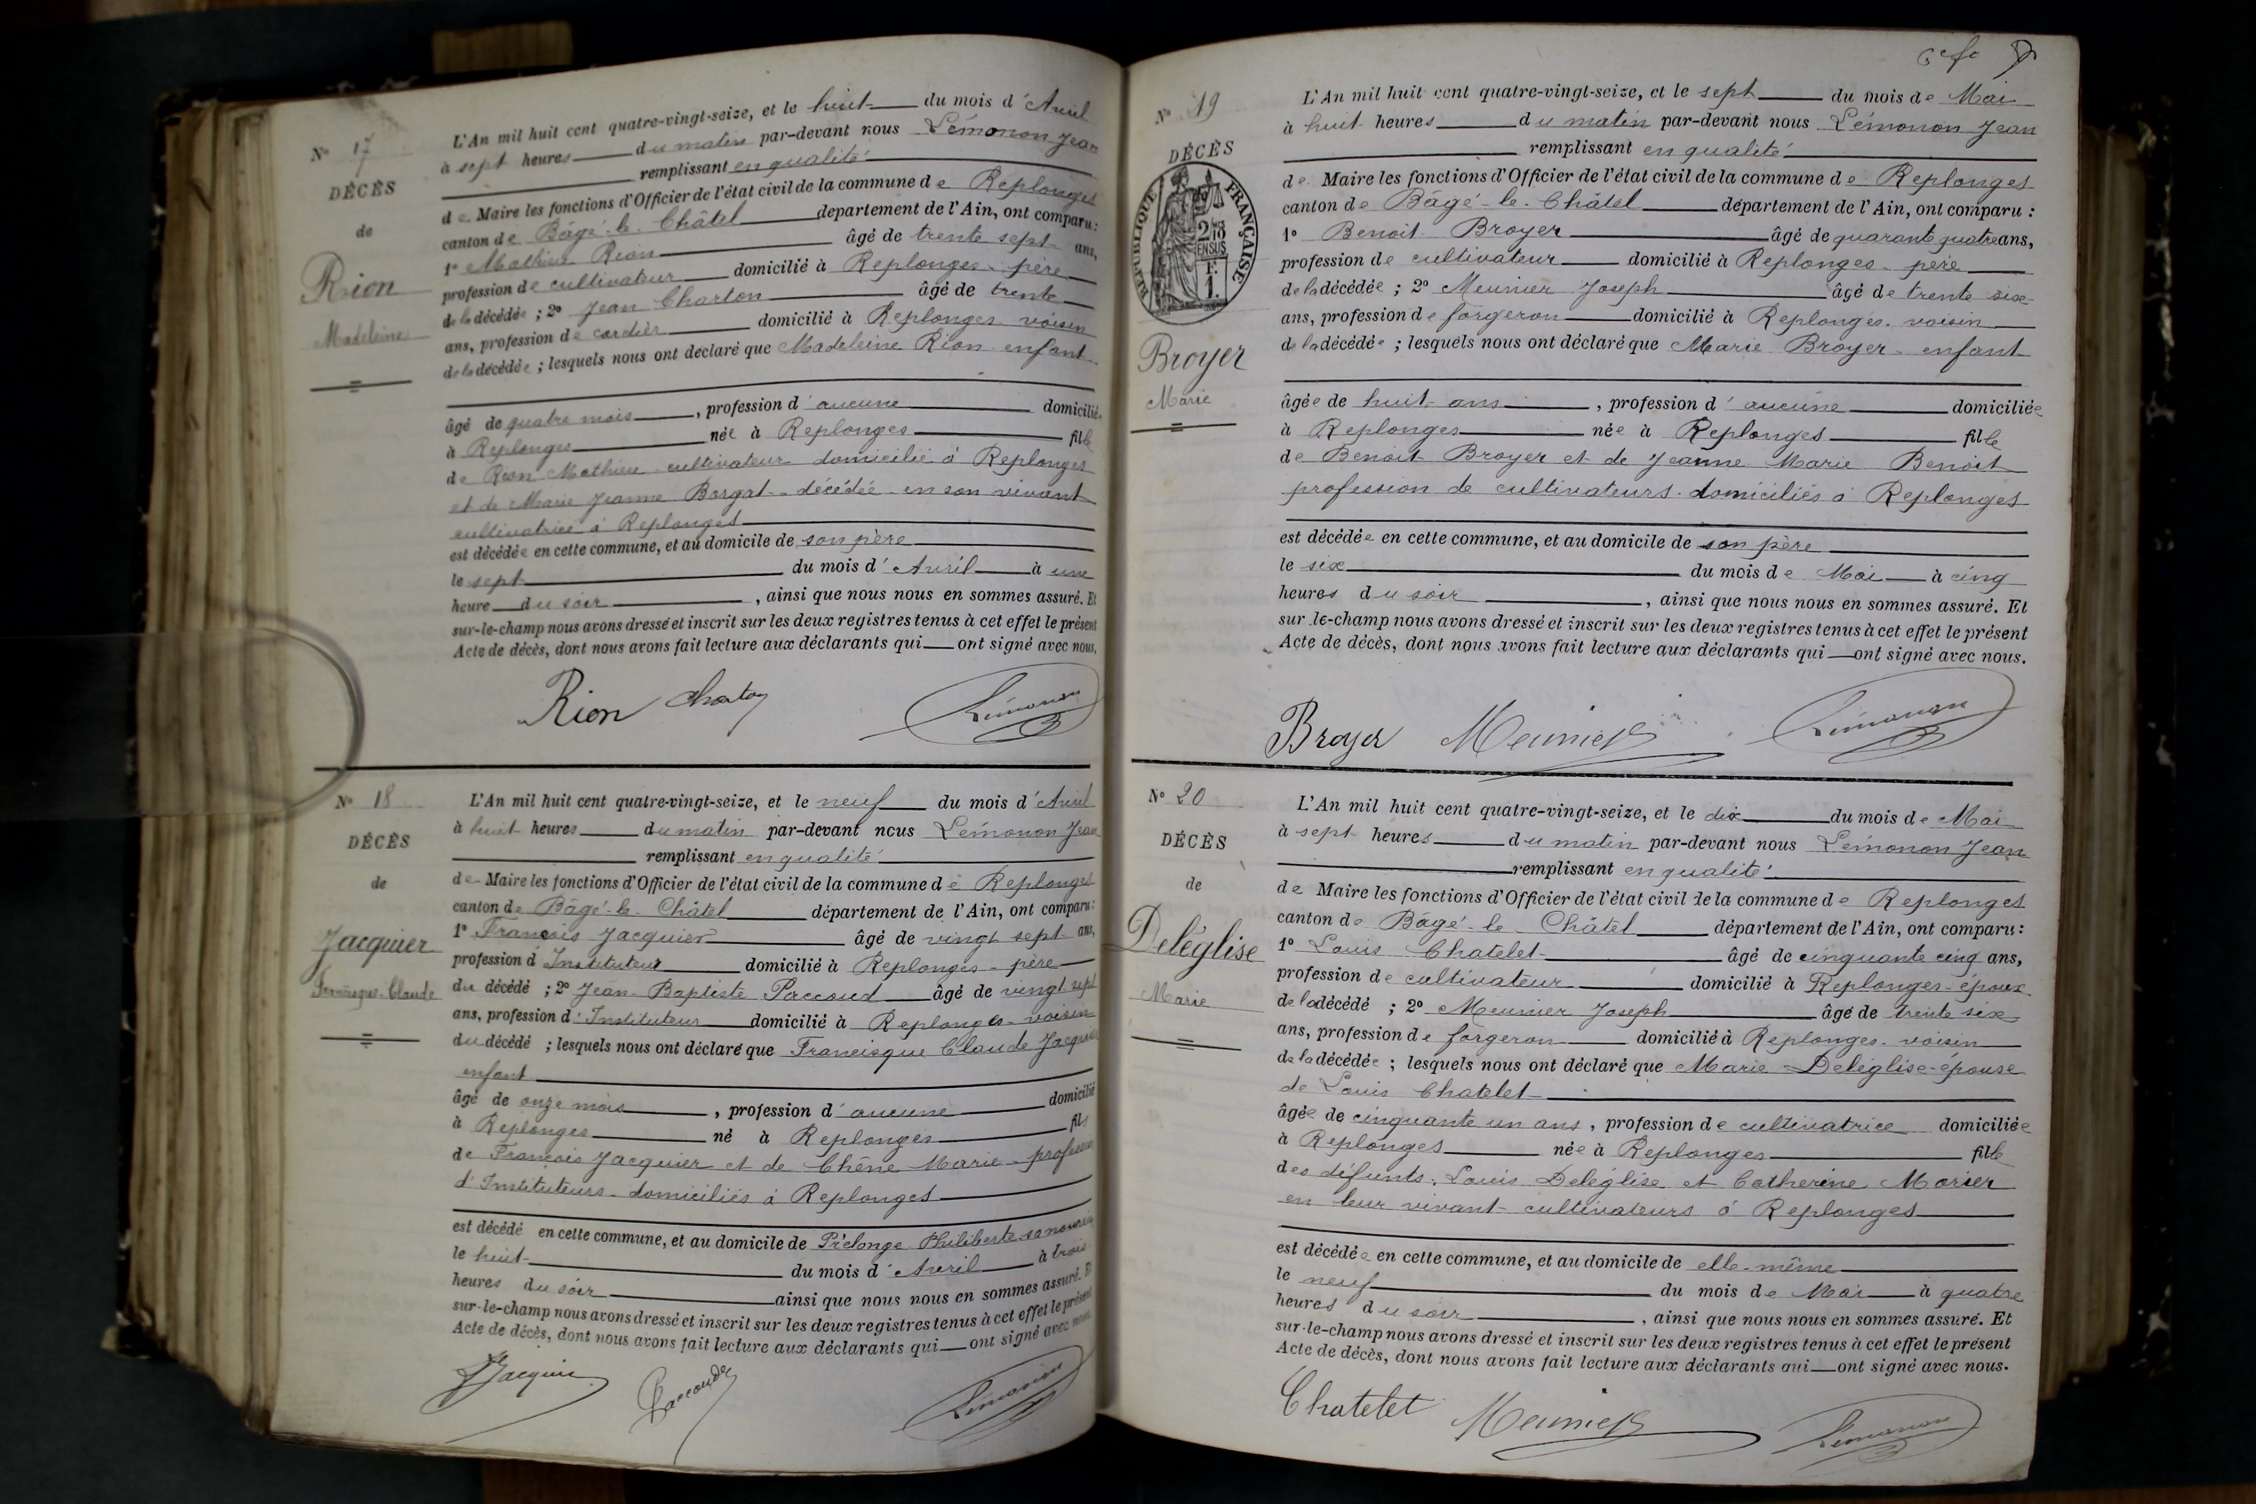 N° 17
DÉCÈS
de
Rion
Madeleine
L'An mil huit cent quatre-vingt-seize, et le huit du mois d'Avril
à sept heures du matin par-devant nous Lémonon Jean
remplissant en qualité
de Maire les fonctions d'Officier de l'état civil de la commune de Replonges
canton de Bâgé-le-Châtel département de l'Ain, ont comparu :
1° Mathieu Rion âgé de trente sept ans,
profession de cultivateur domicilié à Replonges père
de la décédée ; 2° Jean Charton âgé de trente
ans, profession de cordier domicilié à Replonges voisin
de la décédée ; lesquels nous ont déclaré que Madeleine Rion enfant
âgé de quatre mois, profession d'aucune domicilié
à Replonges née à Replonges fille
de Rion Mathieu cultivateur domicilié à Replonges
et de Marie Jeanne Borgat décédée en son vivant
cultivatrice à Replonges
est décédée en cette commune, et au domicile de son père
le sept du mois d'Avril à une
heure du soir, ainsi que nous nous en sommes assuré. Et
sur-le-champ nous avons dressé et inscrit sur les deux registres tenus à cet effet le présent
Acte de décès, dont nous avons fait lecture aux déclarants qui ont signé avec nous.
Rion Charton Lémonon
N° 18
DÉCÈS
de
Jacquier
Francisque-Claude
L'An mil huit cent quatre-vingt-seize, et le neuf du mois d'Avril
à huit heures du matin par-devant nous Lémonon Jean
remplissant en qualité
de Maire les fonctions d'Officier de l'état civil de la commune de Replonges
canton de Bâgé-le-Châtel département de l'Ain, ont comparu :
1° François Jacquier âgé de vingt sept ans,
profession d'Instituteur domicilié à Replonges père
du décédé ; 2° Jean-Baptiste Paccoud âgé de vingt sept
ans, profession d'Instituteur domicilié à Replonges voisin
du décédé ; lesquels nous ont déclaré que Francisque Claude Jacquier
enfant
âgé de onze mois, profession d'aucune domicilié
à Replonges né à Replonges fils
de François Jacquier et de Chêne Marie profession
d'Instituteurs domiciliés à Replonges
est décédé en cette commune, et au domicile de Prélonge Philiberte sa nourrice
le huit du mois d'Avril à trois
heures du soir ainsi que nous nous en sommes assuré. Et
sur-le-champ nous avons dressé et inscrit sur les deux registres tenus à cet effet le présent
Acte de décès, dont nous avons fait lecture aux déclarants qui ont signé avec nous.
Jacquier Paccoud Lémonon
N° 19
DÉCÈS
RÉPUBLIQUE FRANÇAISE
2/10 EN SUS
F. 1.
Broyer
Marie
L'An mil huit cent quatre-vingt-seize, et le sept du mois de Mai
à huit heures du matin par-devant nous Lémonon Jean
remplissant en qualité
de Maire les fonctions d'Officier de l'état civil de la commune de Replonges
canton de Bâgé-le-Châtel département de l'Ain, ont comparu :
1° Benoit Broyer âgé de quarante quatre ans,
profession de cultivateur domicilié à Replonges père
de la décédée ; 2° Meunier Joseph âgé de trente six
ans, profession de forgeron domicilié à Replonges voisin
de la décédée ; lesquels nous ont déclaré que Marie Broyer enfant
âgée de huit ans, profession d'aucune domiciliée
à Replonges née à Replonges fille
de Benoit Broyer et de Jeanne Marie Benoit
profession de cultivateurs domiciliés à Replonges
est décédée en cette commune, et au domicile de son père
le six du mois de Mai à cinq
heures du soir, ainsi que nous nous en sommes assuré. Et
sur-le-champ nous avons dressé et inscrit sur les deux registres tenus à cet effet le présent
Acte de décès, dont nous avons fait lecture aux déclarants qui ont signé avec nous.
Broyer Meunier Lémonon
N° 20
DÉCÈS
de
Deléglise
Marie
L'An mil huit cent quatre-vingt-seize, et le dix du mois de Mai
à sept heures du matin par-devant nous Lémonon Jean
remplissant en qualité
de Maire les fonctions d'Officier de l'état civil de la commune de Replonges
canton de Bâgé-le-Châtel département de l'Ain, ont comparu :
1° Louis Chatelet âgé de cinquante cinq ans,
profession de cultivateur domicilié à Replonges époux
de la décédé ; 2° Meunier Joseph âgé de trente six
ans, profession de forgeron domicilié à Replonges voisin
de la décédée ; lesquels nous ont déclaré que Marie Deléglise épouse
de Louis Chatelet
âgée de cinquante un ans, profession de cultivatrice domiciliée
à Replonges née à Replonges fille
des défunts Louis Deléglise et Catherine Morier
en leur vivant cultivateurs à Replonges
est décédée en cette commune, et au domicile de elle-même
le neuf du mois de Mai à quatre
heures du soir, ainsi que nous nous en sommes assuré. Et
sur-le-champ nous avons dressé et inscrit sur les deux registres tenus à cet effet le présent
Acte de décès, dont nous avons fait lecture aux déclarants qui ont signé avec nous.
Chatelet Meunier Lémonon